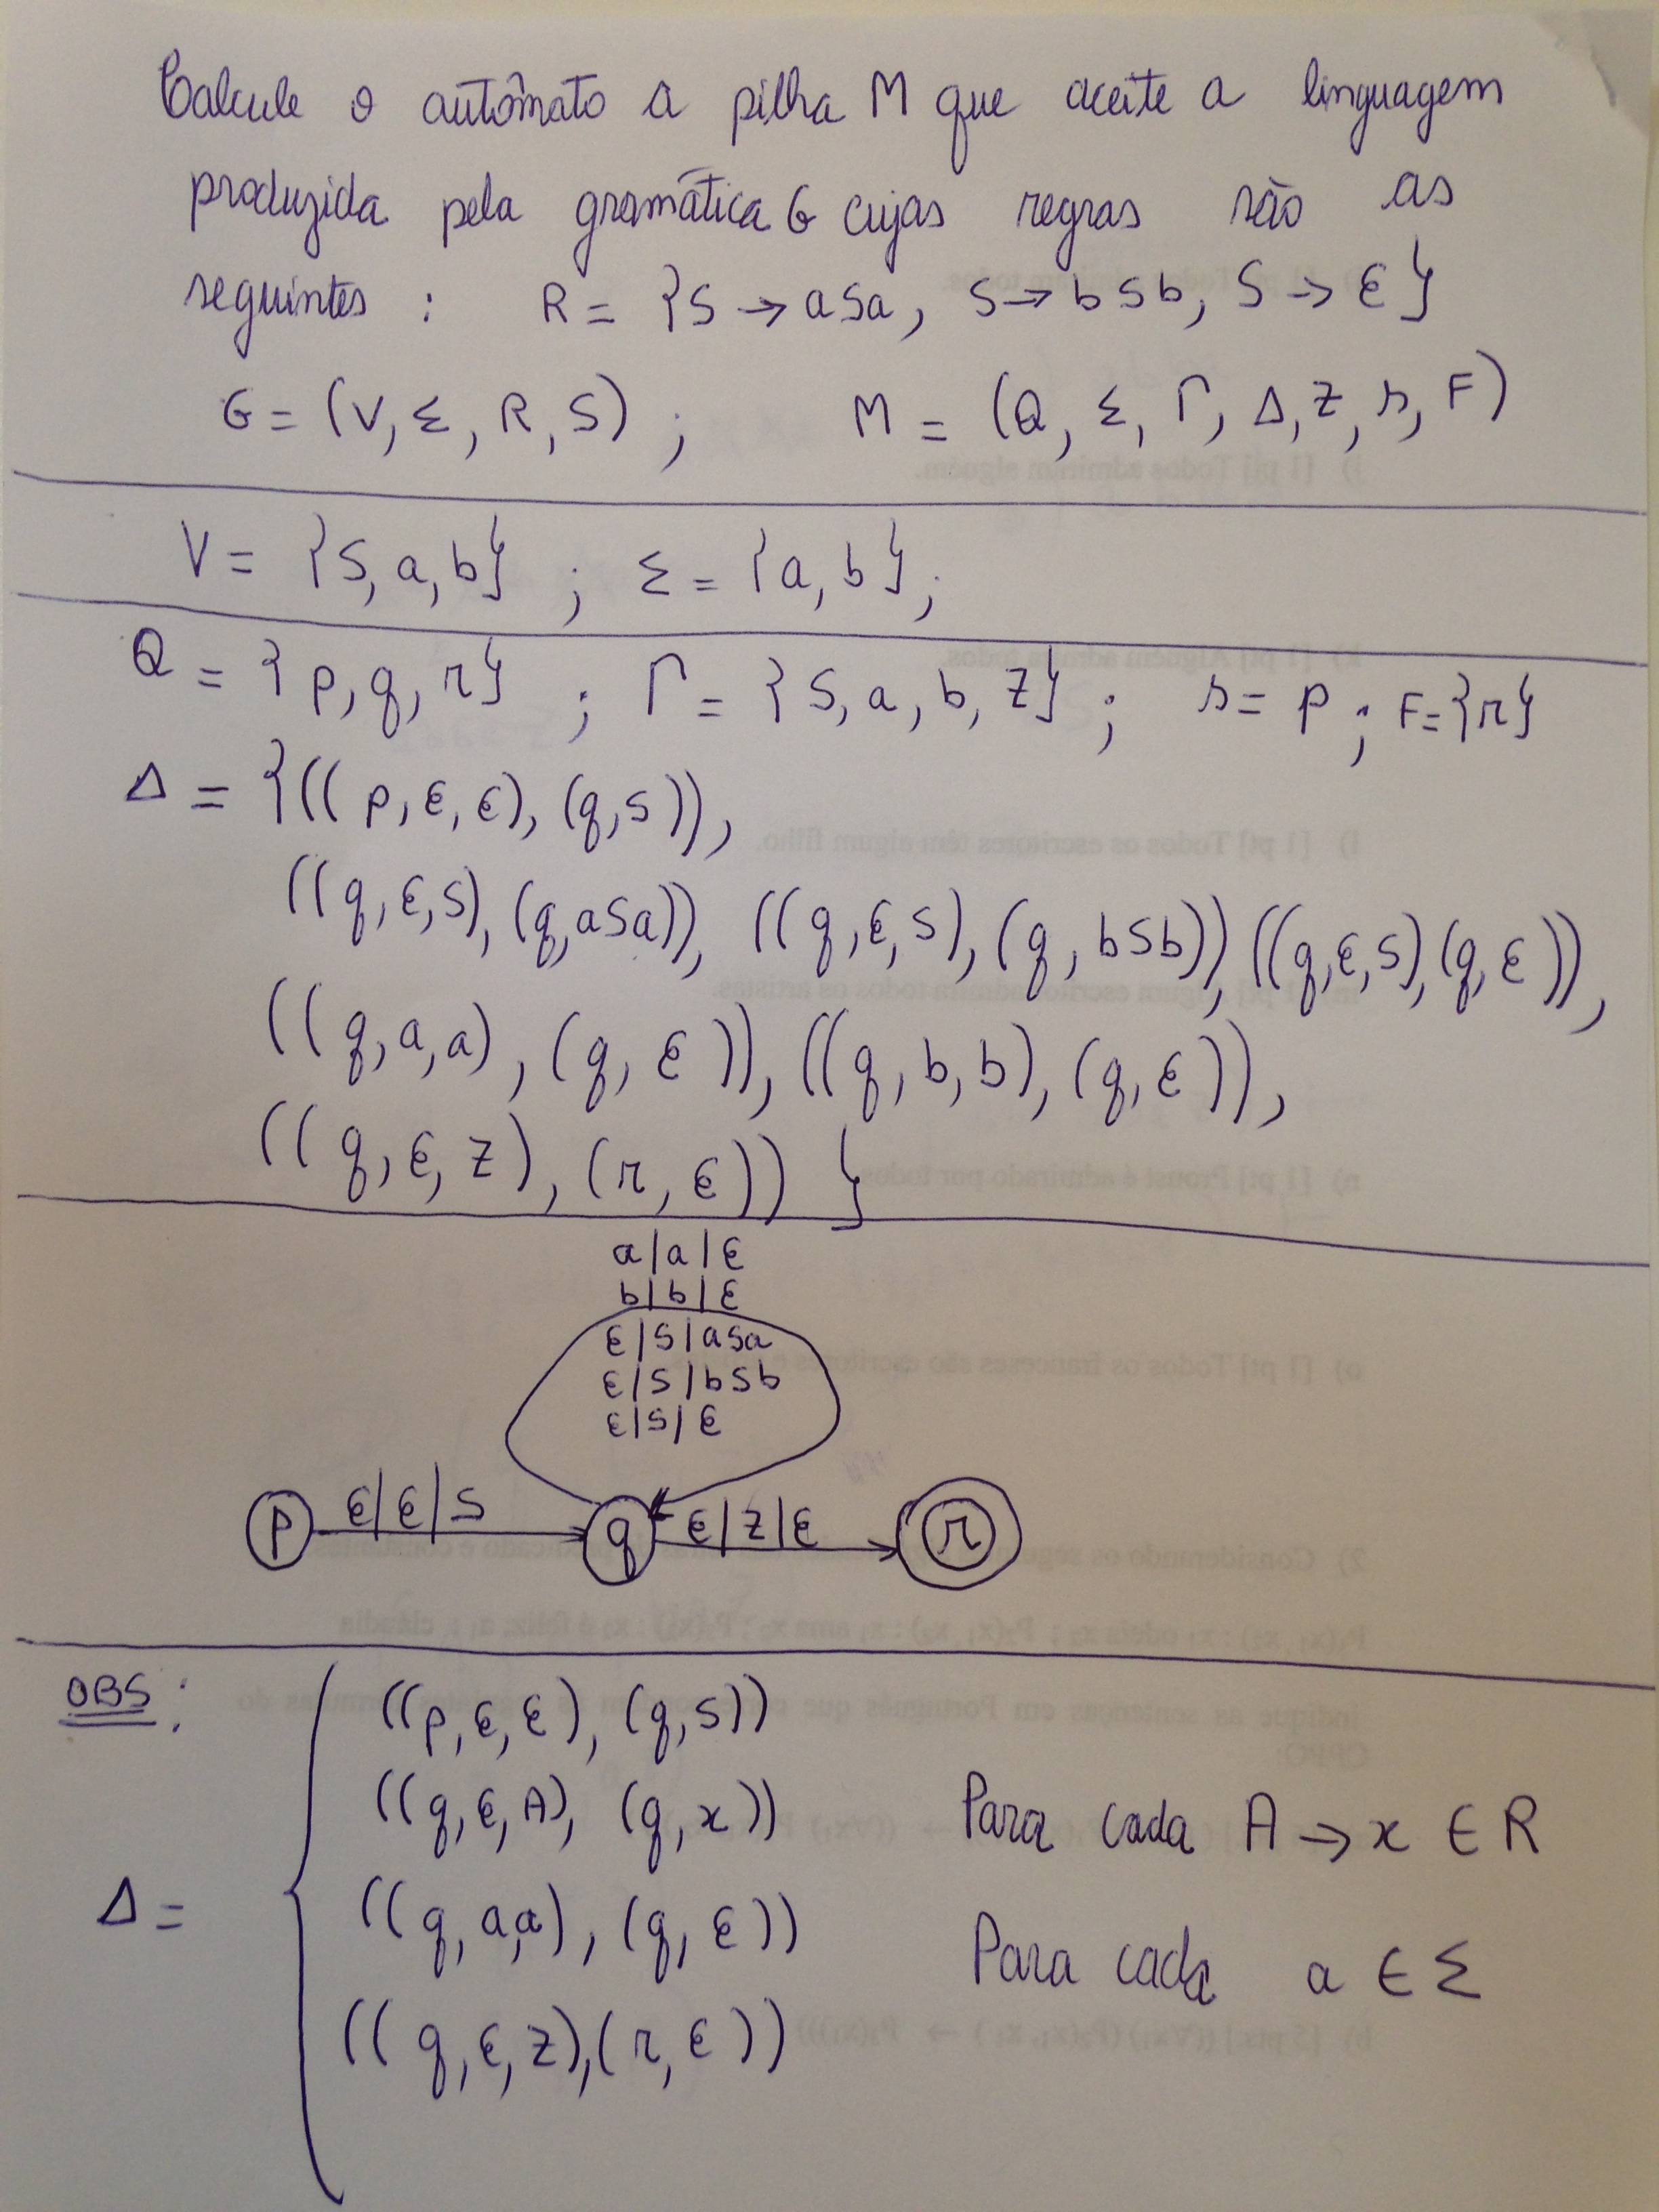 Calcule o autômato a pilha M que aceite a linguagem
produzida pela gramática G cujas regras são as
seguintes : R = {S → aSa, S → bSb, S → ε}
G = (V, Σ, R, S) ; M = (Q, Σ, Γ, Δ, Z, s, F)
V = {S, a, b} ; Σ = {a, b} ;
Q = {p, q, r} ; Γ = {S, a, b, Z} ; s = p ; F = {r}
Δ = {((p, ε, ε), (q, S)),
((q, ε, S), (q, aSa)), ((q, ε, S), (q, bSb)), ((q, ε, S), (q, ε)),
((q, a, a), (q, ε)), ((q, b, b), (q, ε)),
((q, ε, Z), (r, ε)) }
a|a|ε
b|b|ε
ε|S|aSa
ε|S|bSb
ε|S|ε
p ε|ε|S q ε|Z|ε r
OBS :
((p, ε, ε), (q, S))
((q, ε, A), (q, x)) Para cada A → x ∈ R
Δ =
((q, a, a), (q, ε)) Para cada a ∈ Σ
((q, ε, Z), (r, ε))